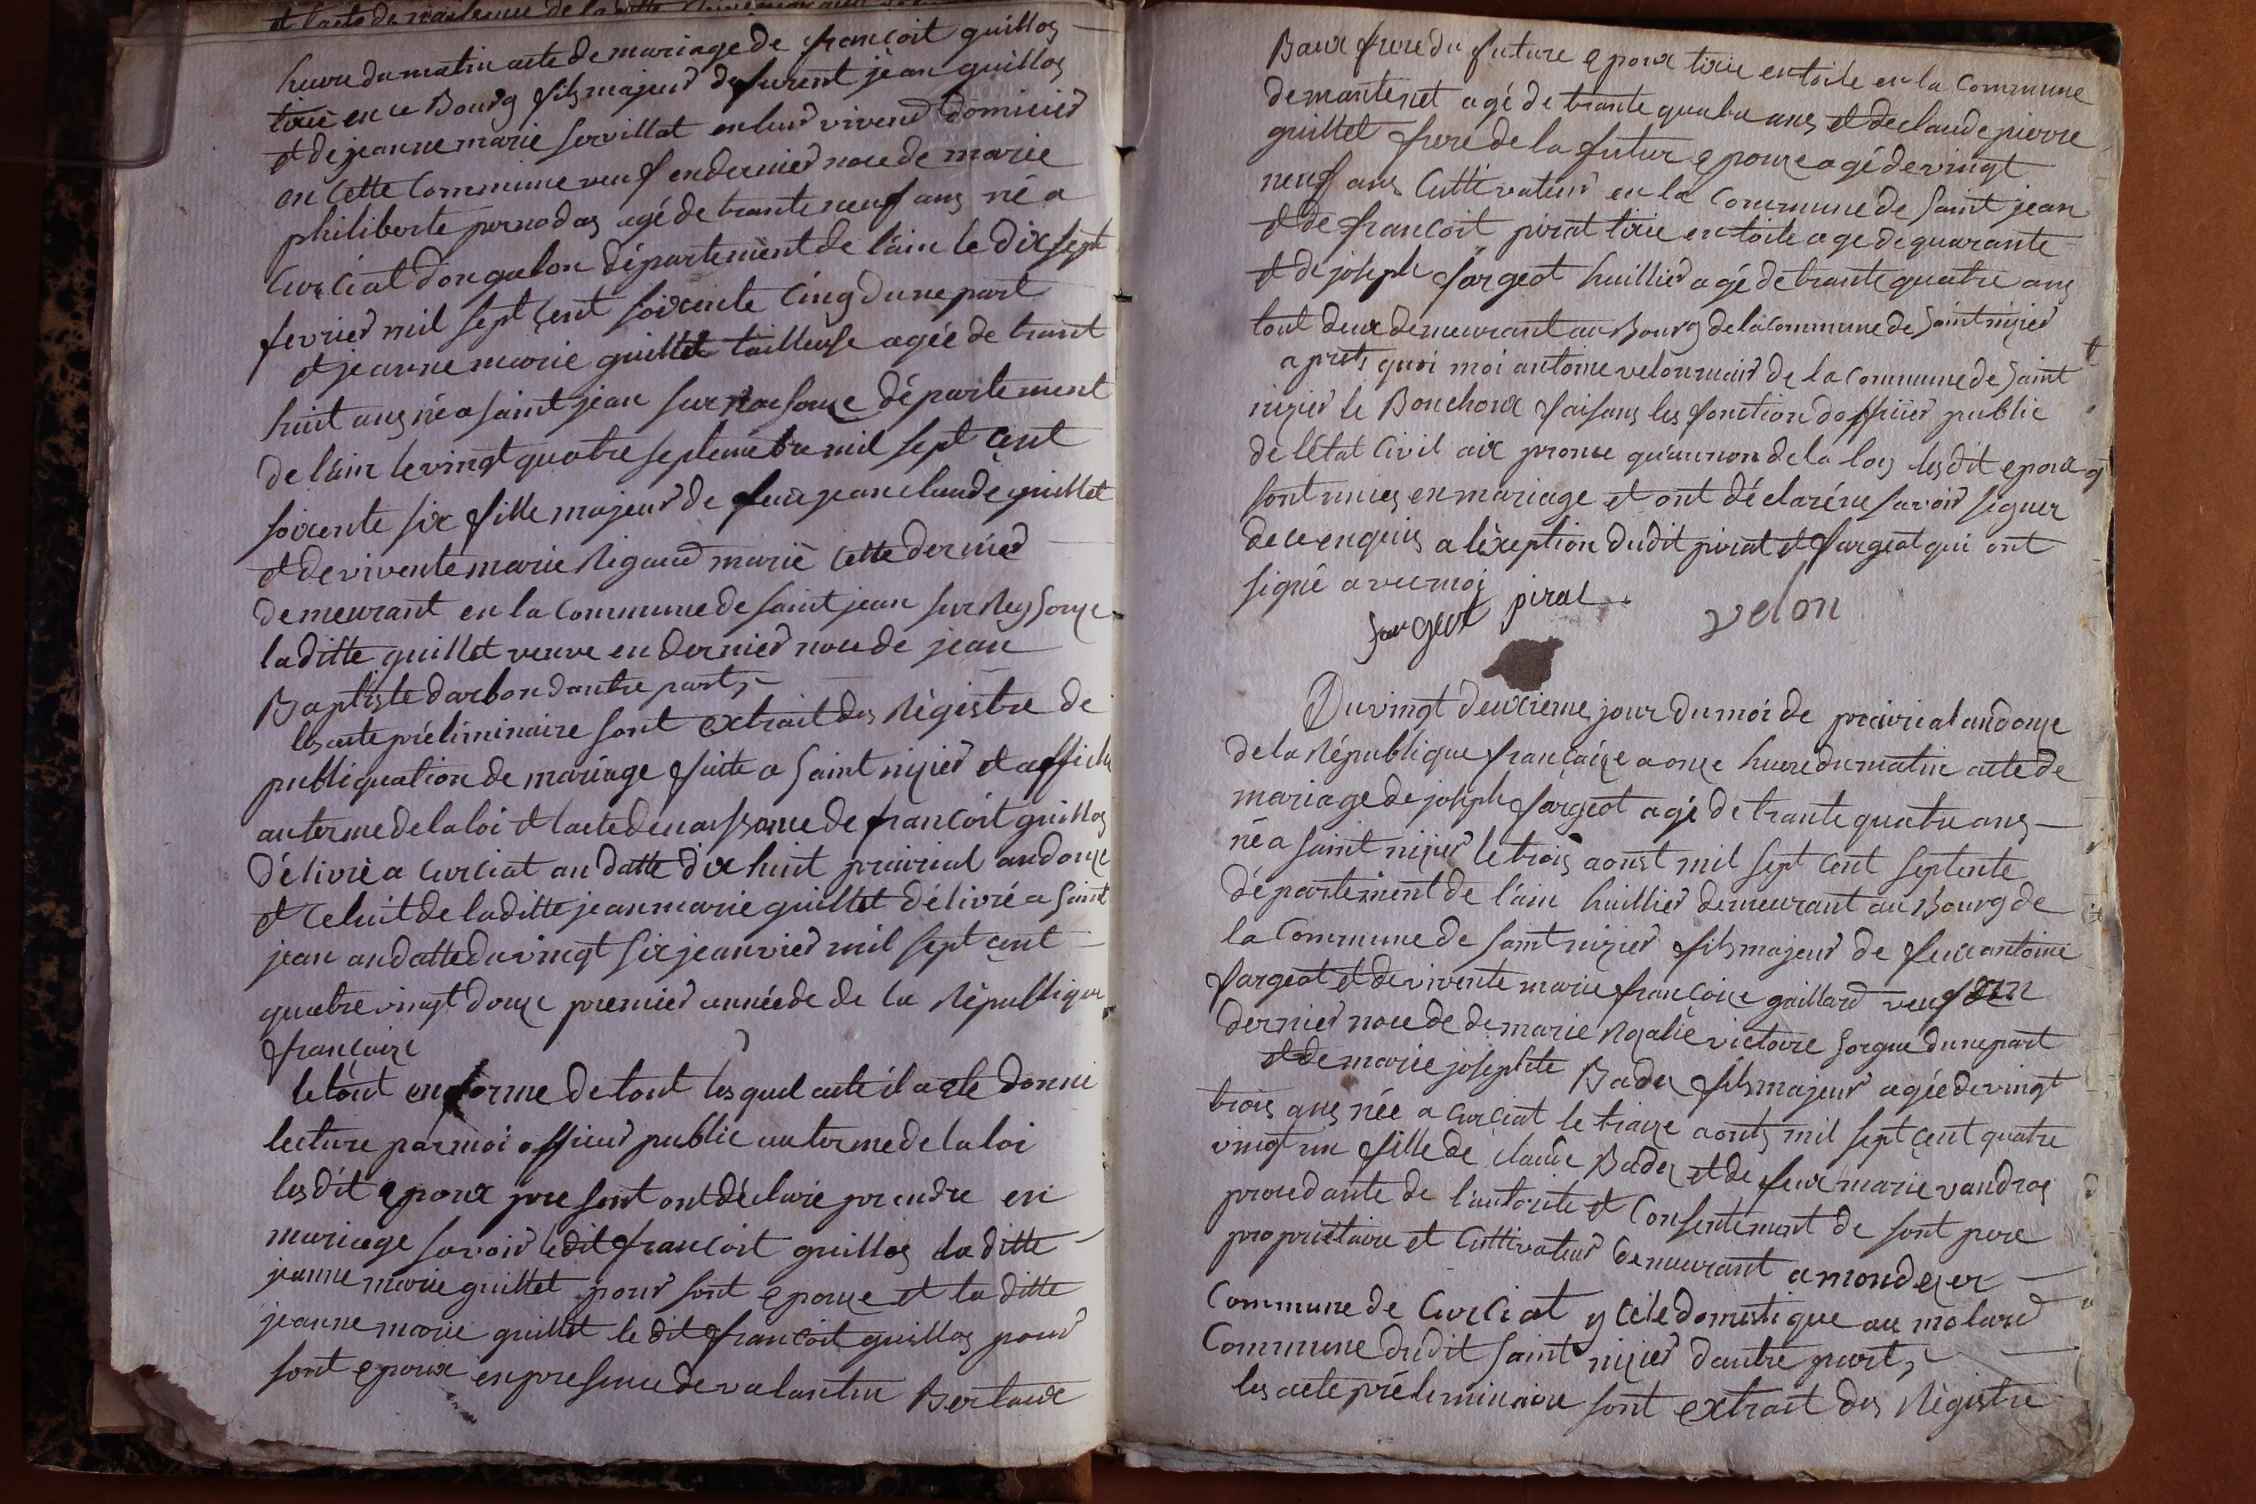 et lacte de naissance de la ditte
heure du matin acte de mariage de francoit guillos
tixie en ce Bourg fils majeur defurent jean guillos
et de jeanne marie servillat en leur vivend domicier
en cette Commune veuf en dernier noce de marie
philiberte pernodas agé de trante neuf ans né a
Curciat dongalon département de l'ain le dix sept
fevrier mil sept cent soixente Cinq dune part
et jeanne marie guillet tailleuse agée de trant
huit ans né a saint jean sur Raisouse département
de l'ain le vingt quatre septembre mil sept cent
soixente six fille majeur de feue jean claude guillet
et de vivente marie Rigaud marié cette dernier
demeurant en la Commune de saint jean sur Reysouze
la ditte guillet veuve en dernier noce de jean
Baptiste darbon dautre part,
les acte préliminaire sont extrait des Régistre de
publiquation de mariage faitte a saint nizier et affiche
au terme de la loi et lacte de naissance de francoit guillos
délivré a Curciat en datte dix huit prairial an douze
et Celuit de la ditte jean marie guillet délivré a saint
jean en datte du vingt six jeanvier mil sept cent
quatre vingt douze premier année de de la République
françaize
le tout en forme de tout les quel acte il a ete donné
lecture par moi officier public au terme de la loi
les dit epoux present ont déclaré prendre en
mariage savoir le dit francoit guillos la ditte
jeanne marie guillet pour sont epouze et la ditte
jeanne marie guillet le dit francoit guillos pour
sont epoux en presence de valantin Bertaux
Baux frere du future epoux tixie en toile en la Commune
de mantenet agé de trante quatre ans et de claude pierre
guillet frere de la futur epouze agé de vingt
neuf ans Cultivateur en la Commune de saint jean
et de francoit pirat tixie en toile age de quarante
et de joseph fargeot huillier agé de trante quatre ans
tout deux demeurant au Bourg de la Commune de saint nizier
aprets quoi moi antoine velon mair de la Commune de saint
nizier le Bouchoux faisans les fonction dofficier public
de l'état Civil aix pronce qu'au non de la loy les dit epoux
sont unies en mariage et ont déclaré ne savoir signer
de ce enquis a l'exeption dudit pirat et fargeat qui ont
signé avec moi
fargeot pirat velon
Du vingt deuxieme jour du moi de prairial an douze
de la République françaize a onze heure du matin acte de
mariage de joseph fargeot agé de trante quatre ans
né a saint nizier le trois aoust mil sept cent septente
département de l'ain huillier demeurant au Bourg de
la Commune de saint nizier fils majeur de feue antoine
fargeot et de vivente marie françoize gaillard veuf en
dernier noce de de marie Rozalie victoire gorgue dune part
et de marie josephte Badez fils majeur agée de vingt
trois ans née a curciat le traize aouts mil sept cent quatre
vingt un fille de claude Badez et de feue marie vandras
procedante de l'autorite et Consentement de sont pere
propriétaire et Cultivateur demeurant a mondezer
Commune de Curciat y Célé domestique au molard
Commune dudit saint nizier dautre part,
les acte préleminaire sont extrait des Régistre